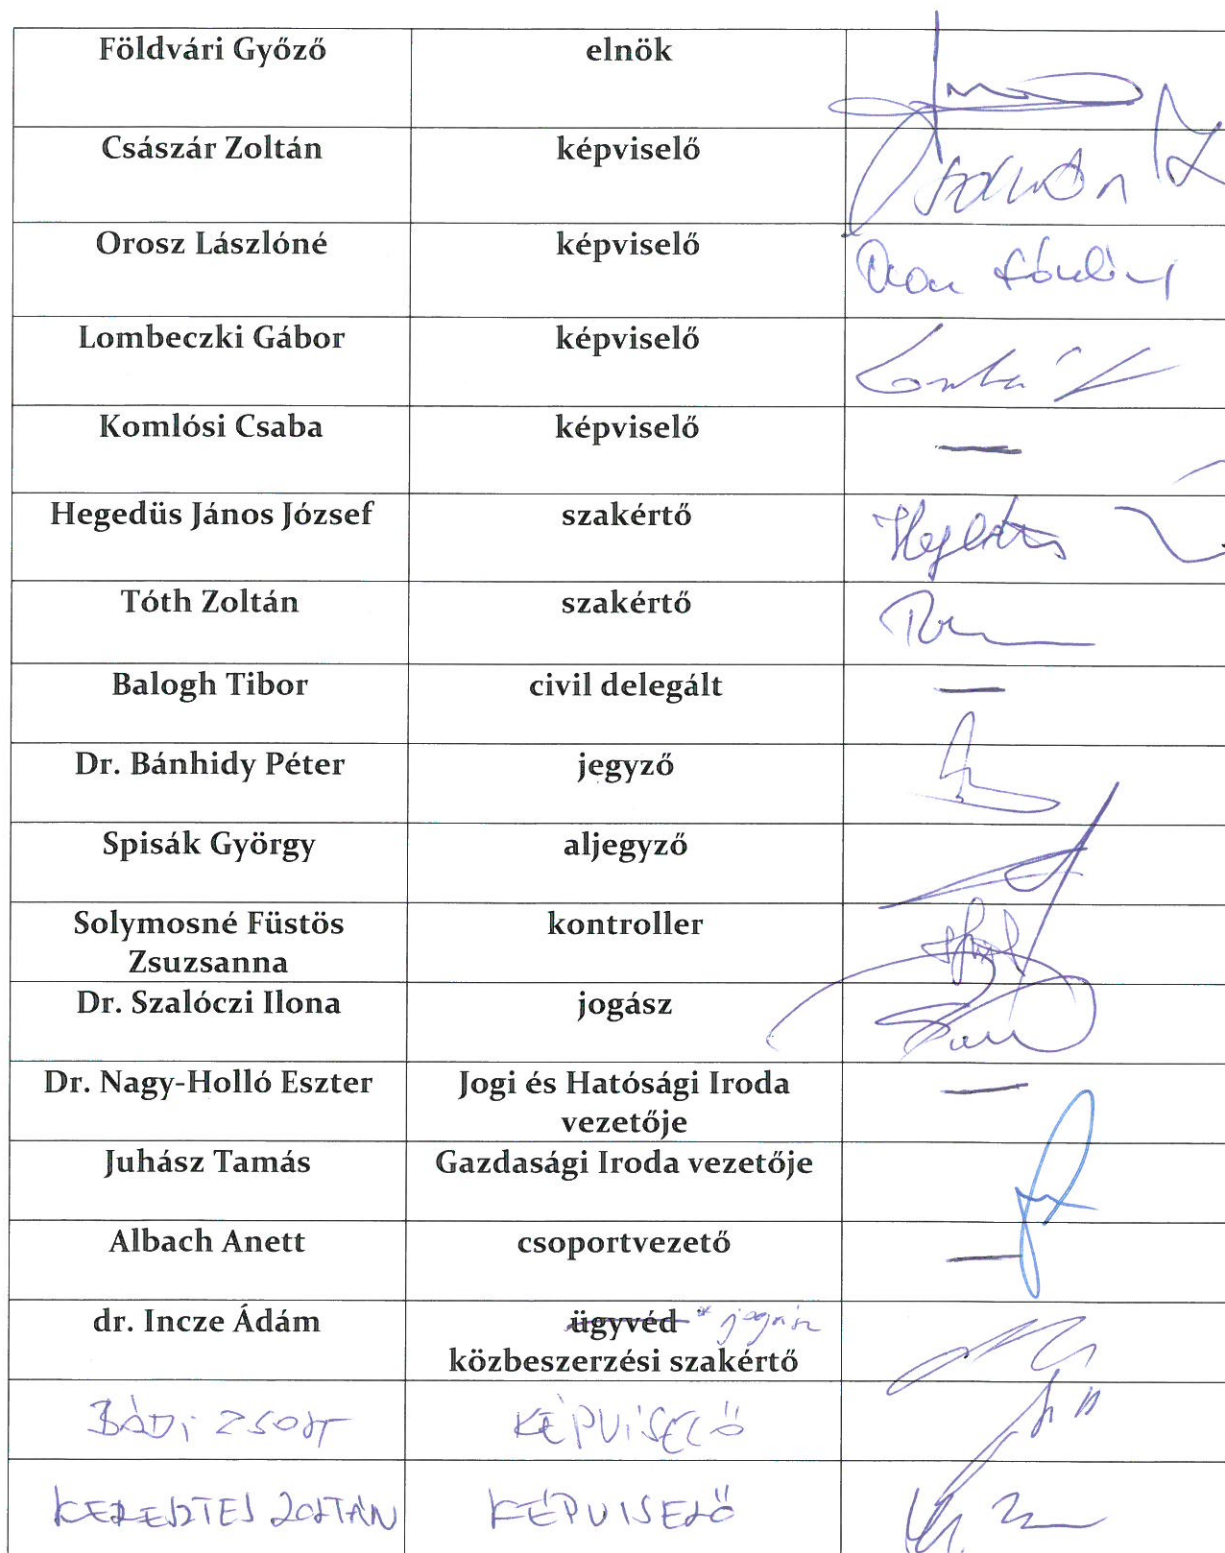 Földvári Győző elnök
Császár Zoltán képviselő
Orosz Lászlóné képviselő
Lombeczki Gábor képviselő
Komlósi Csaba képviselő —
Hegedüs János József szakértő
Tóth Zoltán szakértő
Balogh Tibor civil delegált —
Dr. Bánhidy Péter jegyző
Spisák György aljegyző
Solymosné Füstös kontroller
Zsuzsanna
Dr. Szalóczi Ilona jogász
Dr. Nagy-Holló Eszter Jogi és Hatósági Iroda —
vezetője
Juhász Tamás Gazdasági Iroda vezetője
Albach Anett csoportvezető —
dr. Incze Ádám ügyvéd * jogász
közbeszerzési szakértő
BÁDI ZSOLT KÉPVISELŐ
KERESZTES ZOLTÁN KÉPVISELŐ